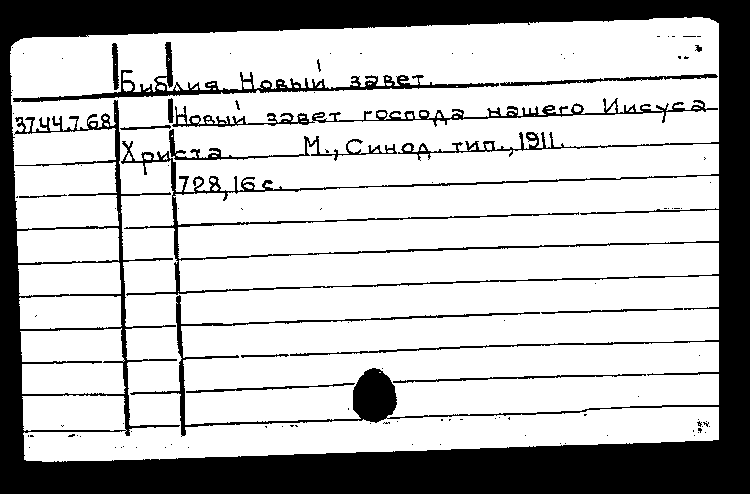 Библия. Новый завет.
37.44.7.68 Новый завет господа нашего Иисуса
Христа. М., Синод. тип., 1911.
728, 16 с.